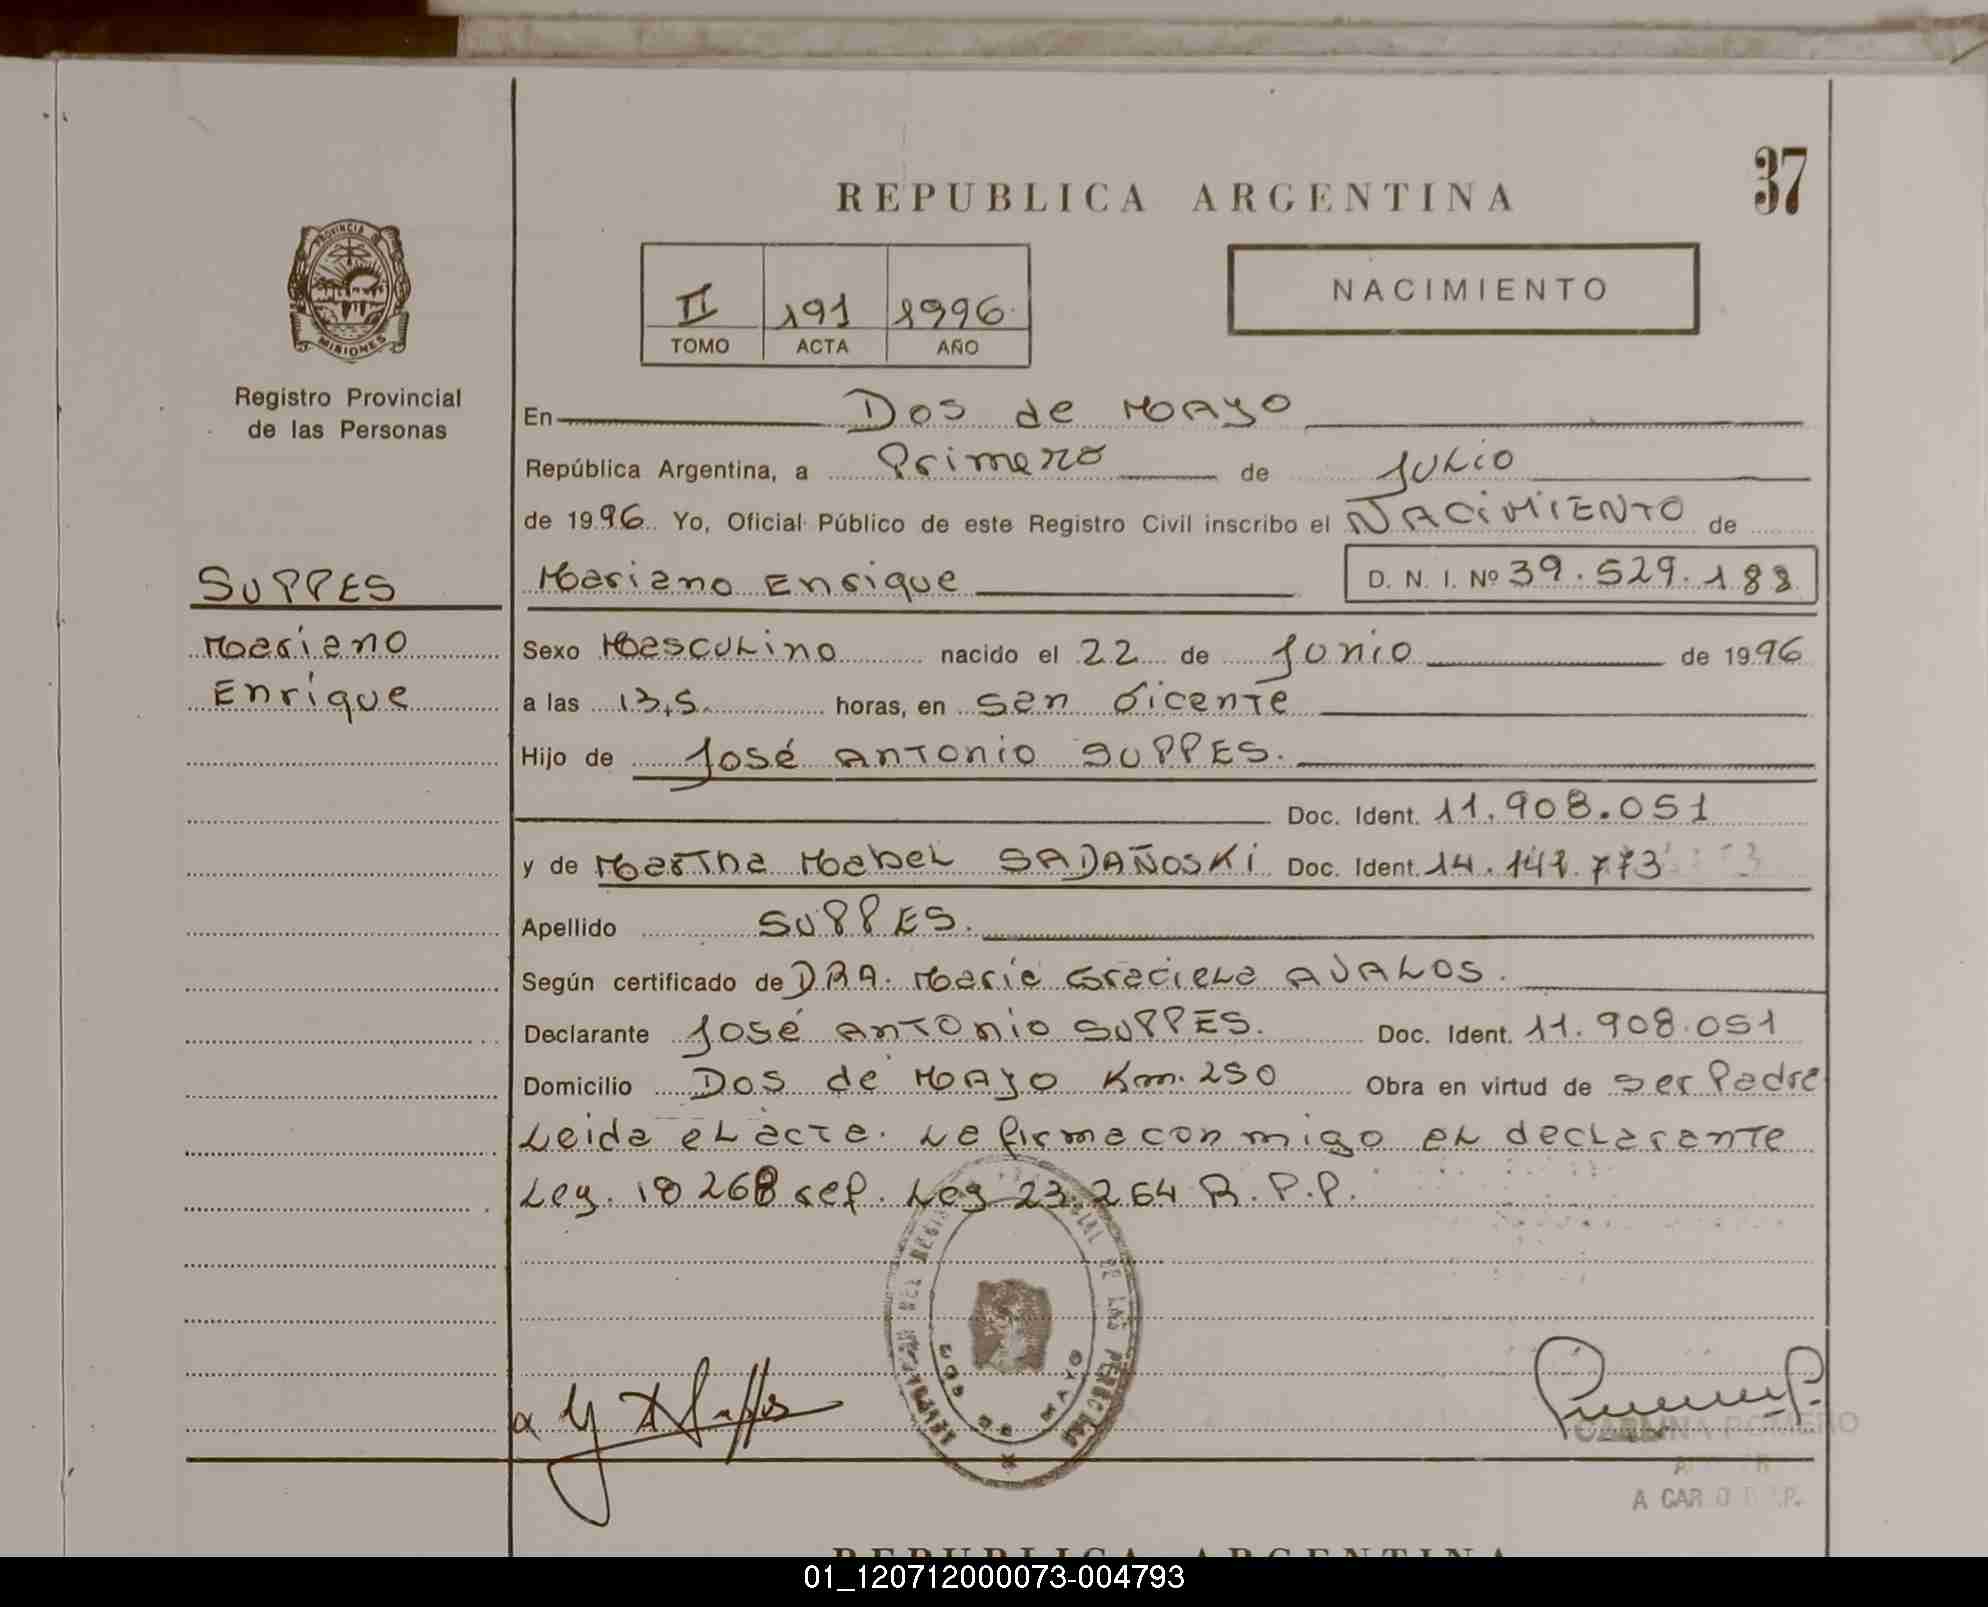 37
REPUBLICA ARGENTINA
PROVINCIA DE
MISIONES
Registro Provincial
de las Personas
II 191 1996
TOMO ACTA AÑO
NACIMIENTO
En Dos de Mayo
República Argentina, a Primero de Julio
de 1996 Yo, Oficial Público de este Registro Civil inscribo el NACIMIENTO de
SUPPES
Mariano Enrique D. N. I. Nº 39.529.188
Mariano
Enrique
Sexo Masculino nacido el 22 de Junio de 1996
a las 13,5 horas, en San Vicente
Hijo de José Antonio SUPPES.
Doc. Ident. 11.908.051
y de Martha Mabel SADAÑOSKI Doc. Ident. 14.141.773
Apellido SUPPES.
Según certificado de DRA. María Graciela AVALOS.
Declarante José Antonio SUPPES. Doc. Ident. 11.908.051
Domicilio Dos de Mayo Km. 250 Obra en virtud de ser Padre
Leida el acta. La firma conmigo el declarante
Ley. 18268 ref. Ley 23.264 R.P.P.
DOS DE MAYO
CARLINA ROMERO
A CARGO R.P.P.
REPUBLICA ARGENTINA
01_120712000073-004793